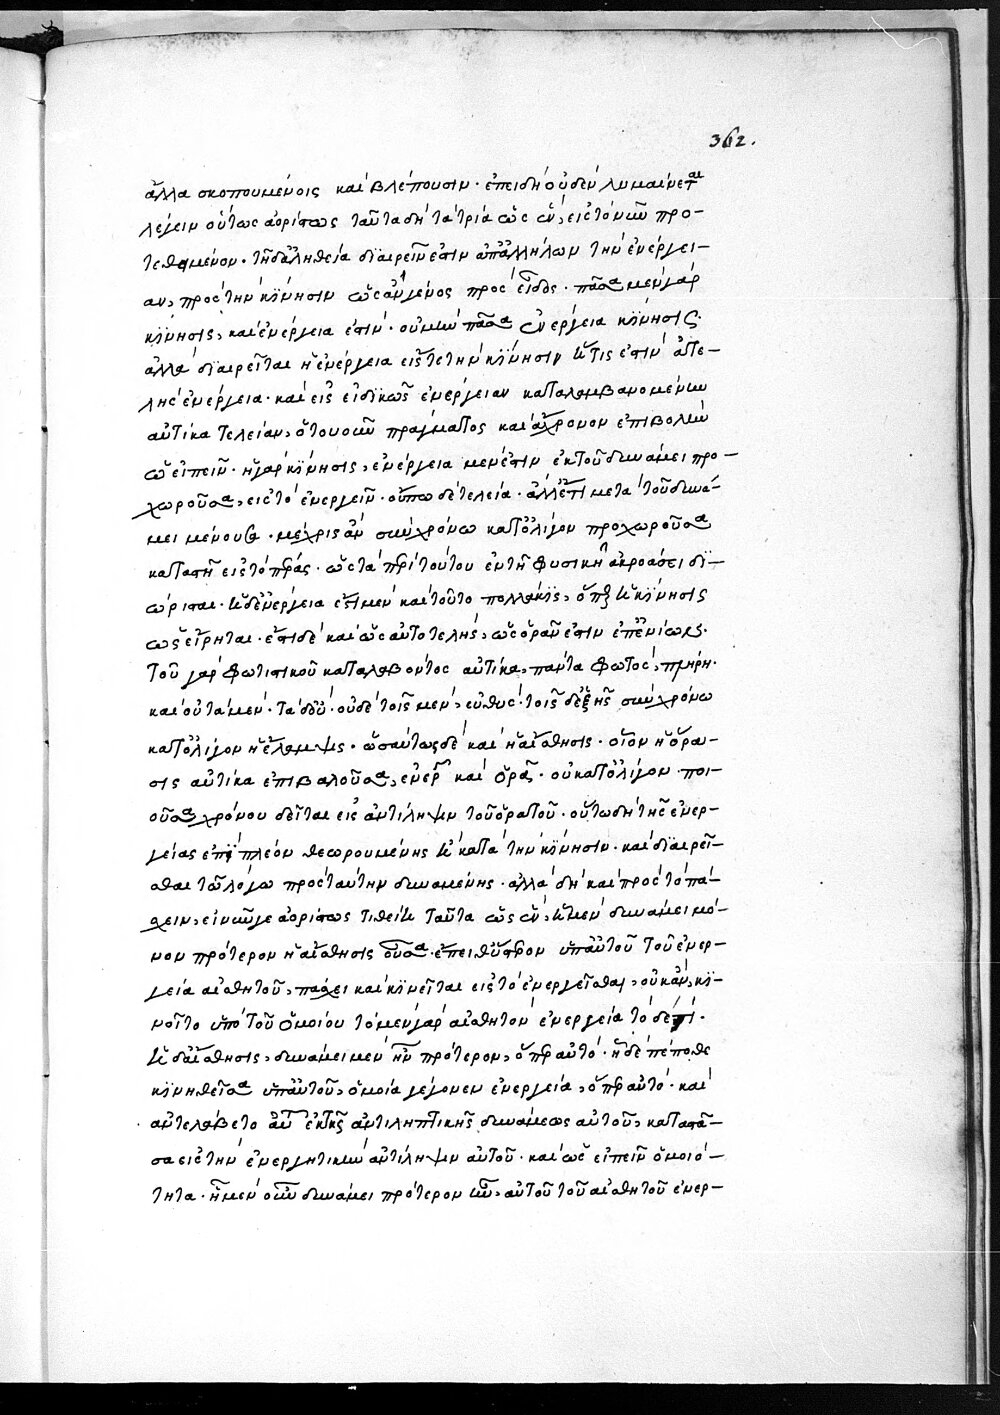 362.
ἄλλα σκοπουμένοις καὶ βλέπουσιν· ἐπειδὴ οὐδὲν λυμαίνεται
λέγειν οὕτως ἀορίστως ταῦτα δὴ τὰ τρία ὡς ἓν, εἰς τὸ νῦν προ-
τεθειμένον· τῇ δ' ἀληθείᾳ διαιρεῖν ἐστιν ἀπ' ἀλλήλων τὴν ἐνέργει-
αν, πρὸς τὴν κίνησιν ὡς ἂν γένος πρὸς εἶδος· πᾶσα μὲν γὰρ
κίνησις, καὶ ἐνέργεια ἐστίν· οὐ μὴν πᾶσα ἐνέργεια κίνησις·
ἀλλὰ διαιρεῖται ἡ ἐνέργεια εἴς τε τὴν κίνησιν ἥτις ἐστὶν ἀτε-
λὴς ἐνέργεια· καὶ εἰς εἰδικῶς ἐνέργειαν καταλαμβανομένην
αὐτίκα τελείαν, ὅτου οὖν πράγματος καὶ ἄχρονον ἐπιβολὴν
ὡς εἰπεῖν· ἡ γὰρ κίνησις, ἐνέργεια μέν ἐστιν ἐκ τοῦ δυνάμει προ-
χωροῦσα, εἰς τὸ ἐνεργεῖν· οὔπω δὲ τελεία· ἀλλ' ἔτι μετὰ τοῦ δυνά-
μει μένουσα· μέχρις ἂν σὺν χρόνῳ κατ' ὀλίγον προχωροῦσα
καταστῇ εἰς τὸ πέρας· ὡς τὰ περὶ τούτου ἐν τῇ φυσικῇ ἀκροάσει δι-
ώρισται· ἡ δ' ἐνέργεια ἔστι μὲν καὶ τοῦτο πολλάκις, ὅπερ ἡ κίνησις
ὡς εἴρηται· ἔστι δὲ καὶ ὡς αὐτοτελὴς, ὡς ὁρᾶν ἐστιν ἐπ' ἐνίων·
τοῦ γὰρ φωτιστικοῦ καταλαβόντος αὐτίκα, πάντα φωτὸς, πλήρη·
καὶ οὐ τὰ μέν· τὰ δ' οὔ· οὐδὲ τοῖς μὲν, εὐθύς· τοῖς δ' ἑξῆς σὺν χρόνῳ
κατ' ὀλίγον ἡ ἔλαμψις· ὡσαύτως δὲ καὶ ἡ αἴσθησις· οἷον ἡ ὅρα-
σις αὐτίκα ἐπιβαλοῦσα, ἐνεργεῖ καὶ ὁρᾷ· οὐ κατ' ὀλίγον ποι-
οῦσα χρόνου δεῖται εἰς ἀντίληψιν τοῦ ὁρατοῦ· οὕτω δὴ τῆς ἐνερ-
γείας ἐπὶ πλέον θεωρουμένης ἢ κατὰ τὴν κίνησιν· καὶ διαιρεῖ-
σθαι τῷ λόγῳ πρὸς ταύτην δυναμένης· ἀλλὰ δὴ καὶ πρὸς τὸ πά-
σχειν, εἰ νῦν γε ἀορίστως τιθείη ταῦτα ὡς ἓν, ἡ μὲν δυνάμει μό-
νον πρότερον ἡ αἴσθησις οὖσα· ἔπειθ' ὕστερον ὑπ' αὐτοῦ τοῦ ἐνερ-
γείᾳ αἰσθητοῦ, πάσχει καὶ κινεῖται εἰς τὸ ἐνεργεῖσθαι, οὐκ ἂν, κι-
νοῖτο ὑπὸ τοῦ ὁμοίου τὸ μὲν γὰρ αἰσθητὸν ἐνεργείᾳ τόδε τί·
ἡ δ' αἴσθησις, δυνάμει μὲν ἦν πρότερον, ὅπερ αὐτό· ἤδε πέπονθε
κινηθεῖσα ὑπ' αὐτοῦ, ὁμοία γέγονεν ἐνεργείᾳ, ὅπερ αὐτό· καὶ
ἀντελάβετο αὐτοῦ ἐκ τῆς ἀντιληπτικῆς δυνάμεως αὐτοῦ, καταστᾶ-
σα εἰς τὴν ἐνεργητικὴν ἀντίληψιν αὐτοῦ· καὶ ὡς εἰπεῖν ὁμοιό-
τητα· ἦ μὲν οὖν δυνάμει πρότερον ἦν, αὐτοῦ τοῦ αἰσθητοῦ ἐνερ-